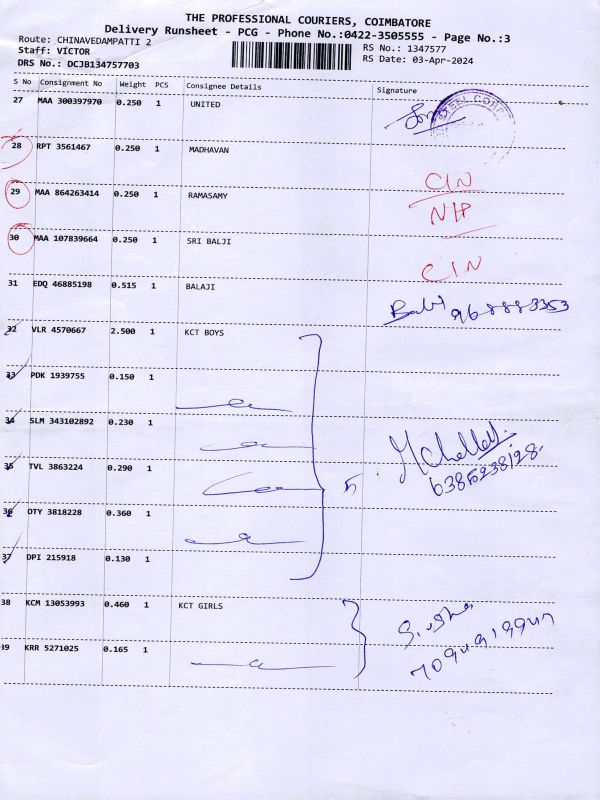 THE PROFESSIONAL COURIERS, COIMBATORE
Delivery Runsheet - PCG - Phone No.:0422-3505555 - Page No.:3
Route: CHINAVEDAMPATTI 2
RS No.: 1347577
Staff: VICTOR
RS Date: 03-Apr-2024
DRS No.: DCJB134757703
S No Consignment No Weight PCS Consignee Details Signature
27 MAA 300397970 0.250 1 UNITED
STEEL
28 RPT 3561467 0.250 1 MADHAVAN
29 MAA 864263414 0.250 1 RAMASAMY CIN
N/P
30 MAA 107839664 0.250 1 SRI BALJI CIN
31 EDQ 46885198 0.515 1 BALAJI
32 VLR 4570667 2.500 1 KCT BOYS
33 PDK 1939755 0.150 1
34 SLM 343102892 0.230 1
35 TVL 3863224 0.290 1 5
36 OTY 3818228 0.360 1
37 DPI 215918 0.130 1
38 KCM 13053993 0.460 1 KCT GIRLS
39 KRR 5271025 0.165 1